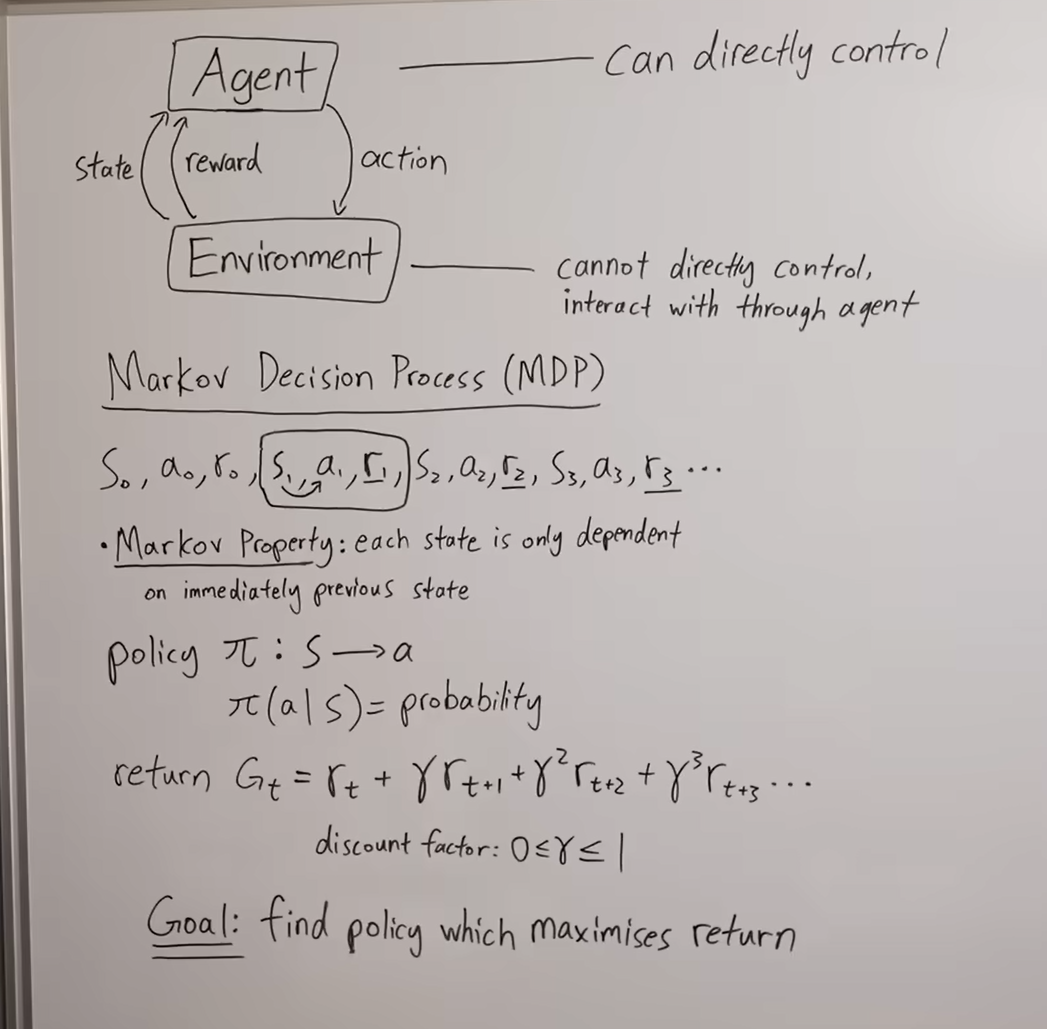 Agent
Can directly control
state
reward
action
Environment
cannot directly control,
interact with through agent
Markov Decision Process (MDP)
S₀, a₀, r₀, S₁, a₁, r₁, S₂, a₂, r₂, S₃, a₃, r₃ ...
• Markov Property: each state is only dependent
on immediately previous state
policy π : S → a
π(a|s) = probability
return Gₜ = rₜ + γrₜ₊₁ + γ²rₜ₊₂ + γ³rₜ₊₃ ...
discount factor: 0≤γ≤1
Goal: find policy which maximises return